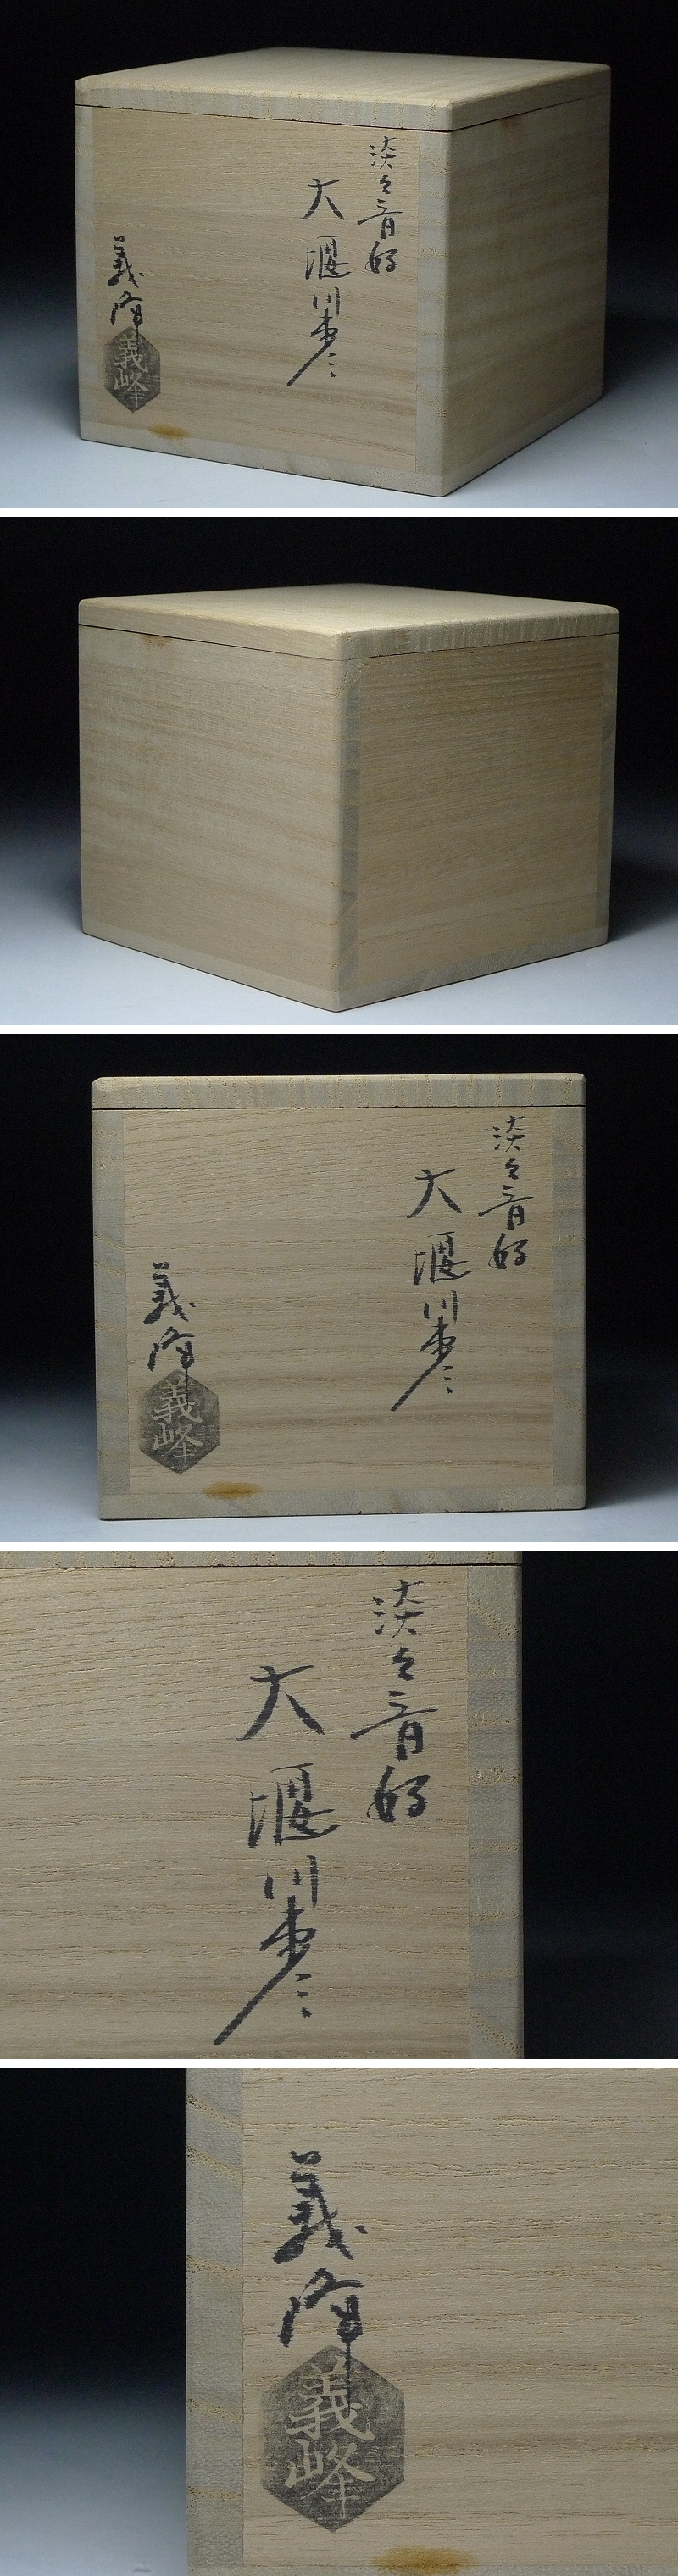 淡々斎好
大堰川棗
義峰
義峰
淡々斎好
大堰川棗
義峰
義峰
淡々斎好
大堰川棗
義峰
義峰